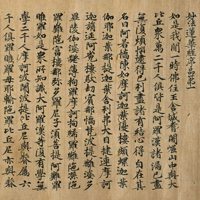 妙法蓮華經序品第一
如是我聞一時佛住王舍城耆闍崛山中與大
比丘衆萬二千人俱皆是阿羅漢諸漏已盡
無復煩惱逮得己利盡諸有結心得自在其
名曰阿若憍陳如摩訶迦葉優樓頻螺迦葉
伽耶迦葉那提迦葉舍利弗大目揵連摩訶
迦旃延阿㝹樓馱劫賓那憍梵波提離婆多
畢陵伽婆蹉薄拘羅摩訶拘絺羅難陀孫陀
羅難陀富樓那彌多羅尼子須菩提阿難羅
睺羅如是衆所知識大阿羅漢等復有學無
學二千人摩訶波闍波提比丘尼與眷屬六
千人俱羅睺羅母耶輸陀羅比丘尼亦與眷